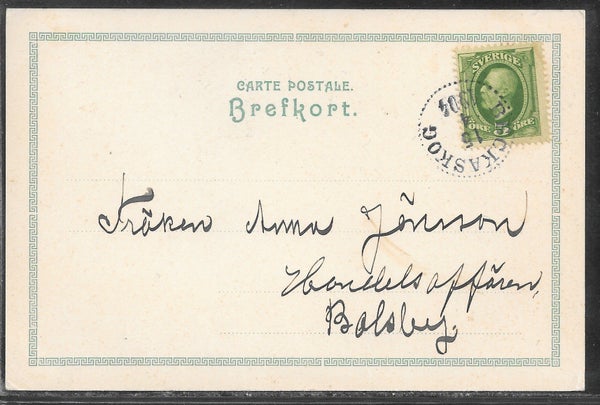 CARTE POSTALE.
Brefkort.
SVERIGE
ÖRE 5 ÖRE
BÄCKASKOG
1904
Fröken Anna Jönsson
Handelsaffären,
Balsby.